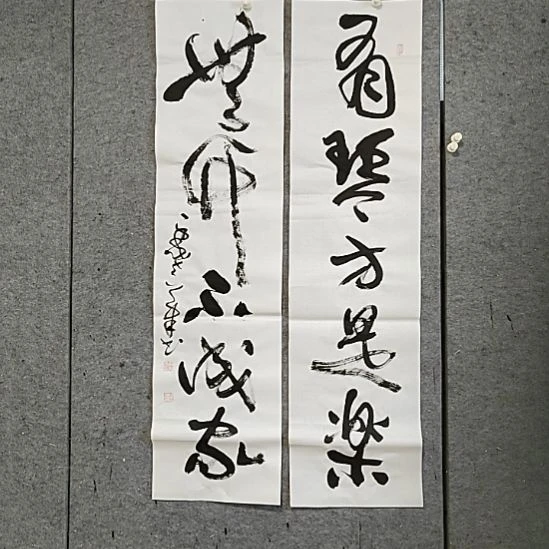 有琴方是樂
無竹不成家